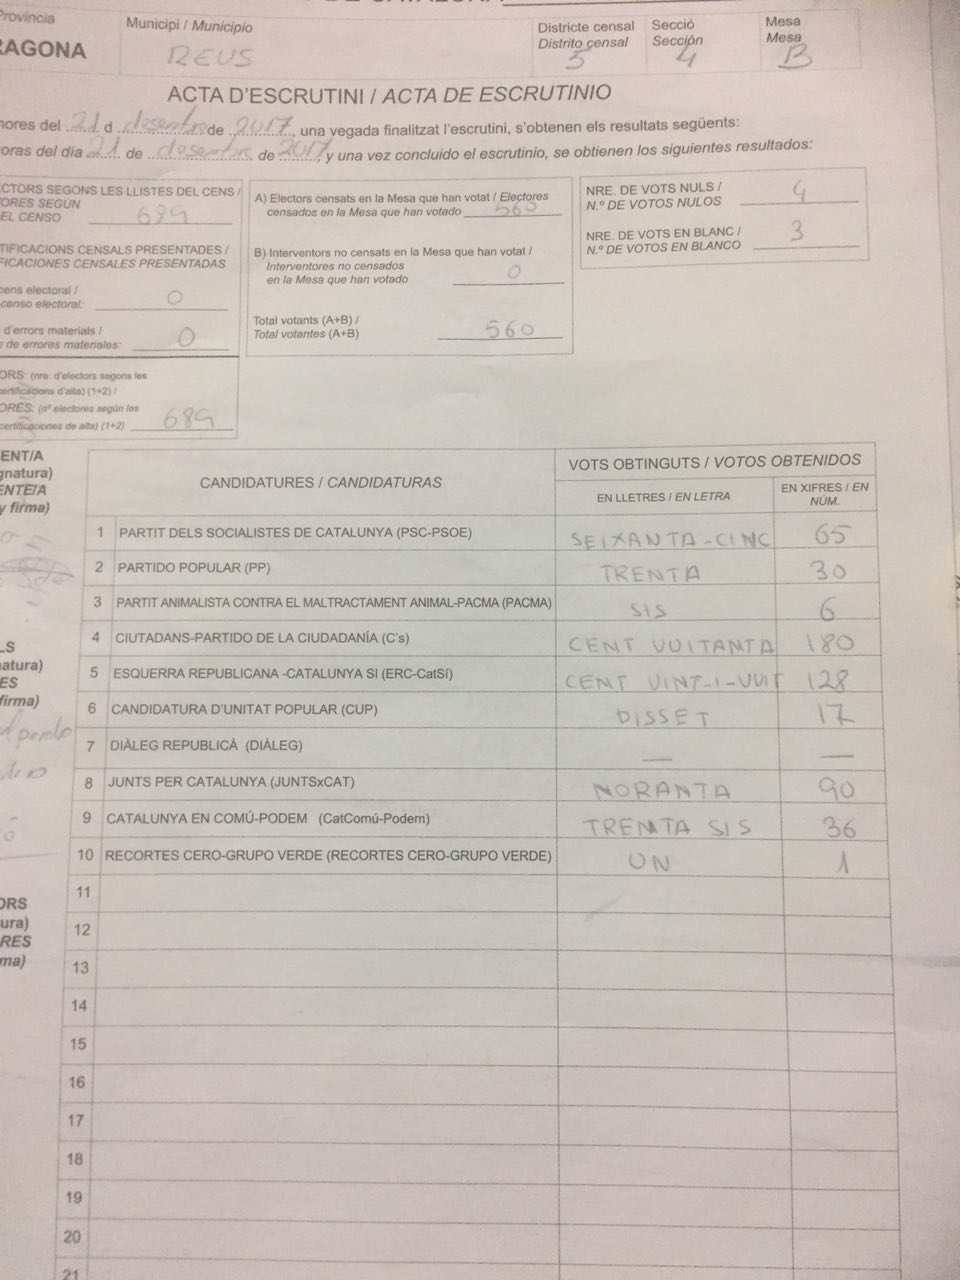 Provincia
RAGONA
Municipi / Municipio
REUS
Districte censal
Distrito censal
5
Secció
Sección
4
Mesa
Mesa
B
ACTA D'ESCRUTINI / ACTA DE ESCRUTINIO
hores del 21 d desembre de 2017, una vegada finalitzat l'escrutini, s'obtenen els resultats següents:
oras del día 21 de desembre de 2017 y una vez concluido el escrutinio, se obtienen los siguientes resultados:
ECTORS SEGONS LES LLISTES DEL CENS /
TORES SEGÚN
EL CENSO 689
TIFICACIONS CENSALS PRESENTADES /
FICACIONES CENSALES PRESENTADAS
cens electoral /
censo electoral: 0
d'errors materials /
n de errores materiales: 0
ORS: (nre. d'electors segons les
certificacions d'alta) (1+2) /
ORES: (nº electores según las
certificaciones de alta) (1+2) 689
A) Electors censats en la Mesa que han votat / Electores
censados en la Mesa que han votado 560
B) Interventors no censats en la Mesa que han votat /
Interventores no censados
en la Mesa que han votado 0
Total votants (A+B) /
Total votantes (A+B) 560
NRE. DE VOTS NULS /
N.º DE VOTOS NULOS 4
NRE. DE VOTS EN BLANC /
N.º DE VOTOS EN BLANCO 3
ENT/A
gnatura)
ENTE/A
y firma)
LS
natura)
ES
firma)
ORS
ura)
RES
ma)
CANDIDATURES / CANDIDATURAS
VOTS OBTINGUTS / VOTOS OBTENIDOS
EN LLETRES / EN LETRA
EN XIFRES / EN
NÚM.
1 PARTIT DELS SOCIALISTES DE CATALUNYA (PSC-PSOE) SEIXANTA-CINC 65
2 PARTIDO POPULAR (PP) TRENTA 30
3 PARTIT ANIMALISTA CONTRA EL MALTRACTAMENT ANIMAL-PACMA (PACMA) SIS 6
4 CIUTADANS-PARTIDO DE LA CIUDADANÍA (C's) CENT VUITANTA 180
5 ESQUERRA REPUBLICANA -CATALUNYA SI (ERC-CatSí) CENT VINT-I-VUIT 128
6 CANDIDATURA D'UNITAT POPULAR (CUP) DISSET 17
7 DIÀLEG REPUBLICÀ (DIÀLEG) — —
8 JUNTS PER CATALUNYA (JUNTSxCAT) NORANTA 90
9 CATALUNYA EN COMÚ-PODEM (CatComú-Podem) TRENTA SIS 36
10 RECORTES CERO-GRUPO VERDE (RECORTES CERO-GRUPO VERDE) UN 1
11
12
13
14
15
16
17
18
19
20
21